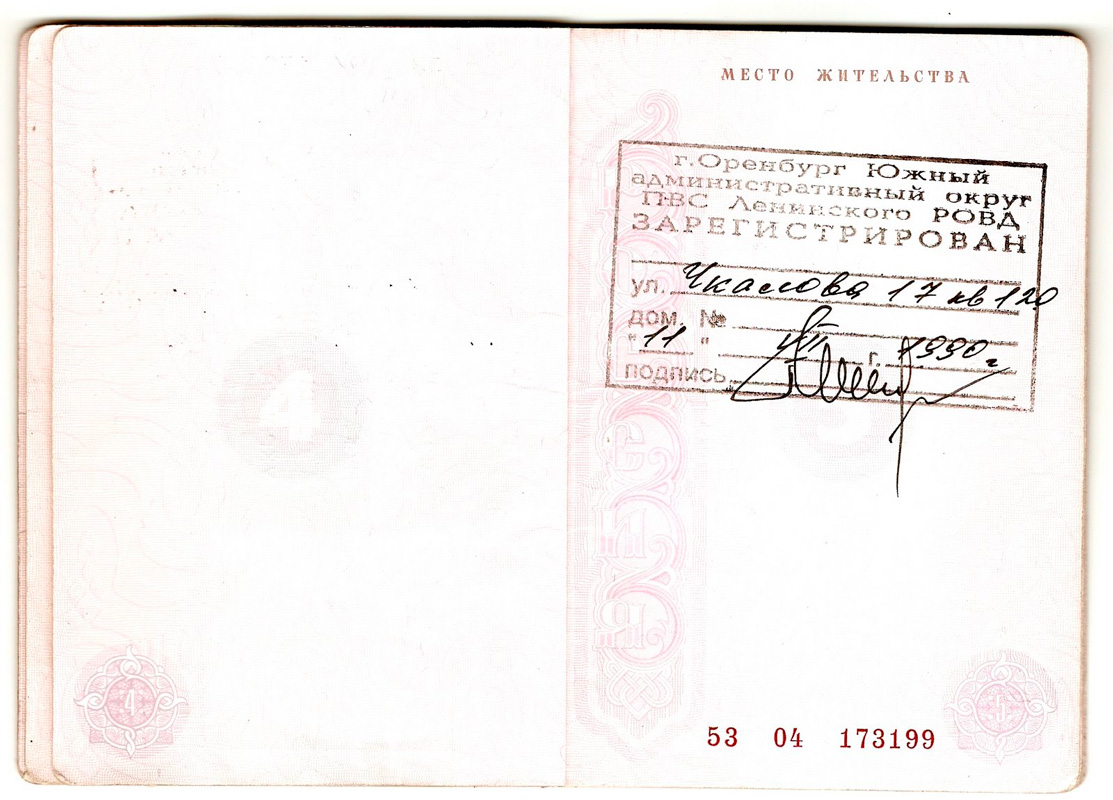 МЕСТО ЖИТЕЛЬСТВА
г.Оренбург Южный
административный округ
ПВС Ленинского РОВД
ЗАРЕГИСТРИРОВАН
ул. Чкалова 17 кв 120
дом. №
"11" VII г. 1990 г
подпись
4
5
4
5
РОССИЯ
53 04 173199